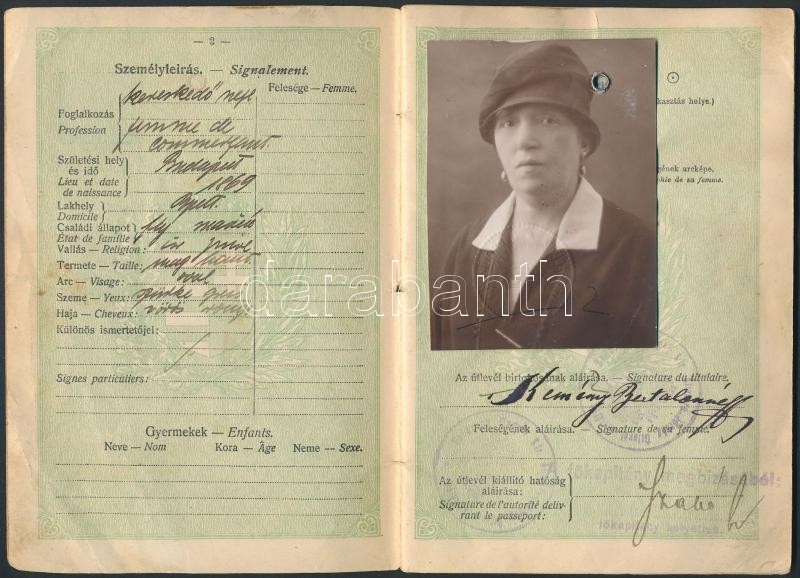 — 3 —
Személyleírás. — Signalement.
kereskedő neje
Felesége — Femme.
Foglalkozás
Profession
femme de
commerçant.
Születési hely
és idő
Budapest
Lieu et date
de naissance
1869
Lakhely
Domicile
Bpest.
Családi állapot
Etat de famille
férj mariée
Vallás — Religion:
izr
Termete — Taille:
mag haut.
Arc — Visage:
oval
Szeme — Yeux:
szürke gris
Haja — Cheveux:
vörös rouge
Különös ismertetőjei:
Signes particuliers:
Gyermekek — Enfants.
Neve — Nom Kora — Âge Neme — Sexe.
kasztás helye.)
gének arcképe.
hie de sa femme.
darabanth
Az útlevél birtokosának aláírása. — Signature du titulaire.
Kemény Bertalanné
Feleségének aláírása. — Signature de sa femme.
főkapitány megbízásából:
Az útlevél kiállító hatóság
aláírása:
Signature de l'autorité déliv-
rant le passeport:
Szabó
főkapitány helyettes.